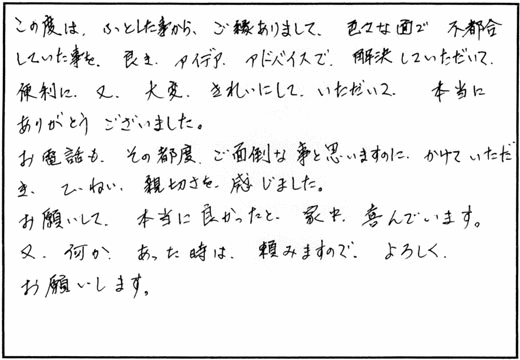 この度は、ふっとした事から、ご縁ありまして、色々な面で 不都合
していた事を、良き、アイデア、アドバイスで、解決していただいて、
便利に、又、大変、きれいにして、いただいて、 本当に
ありがとう ございました。
お電話も、その都度、ご面倒な事と思いますのに、かけていただ
き、てぃねい、親切さを、感じました。
お願いして、本当に良かったと、家中、喜んでいます。
又、何か、あった時は、頼みますので、よろしく、
お願いします。